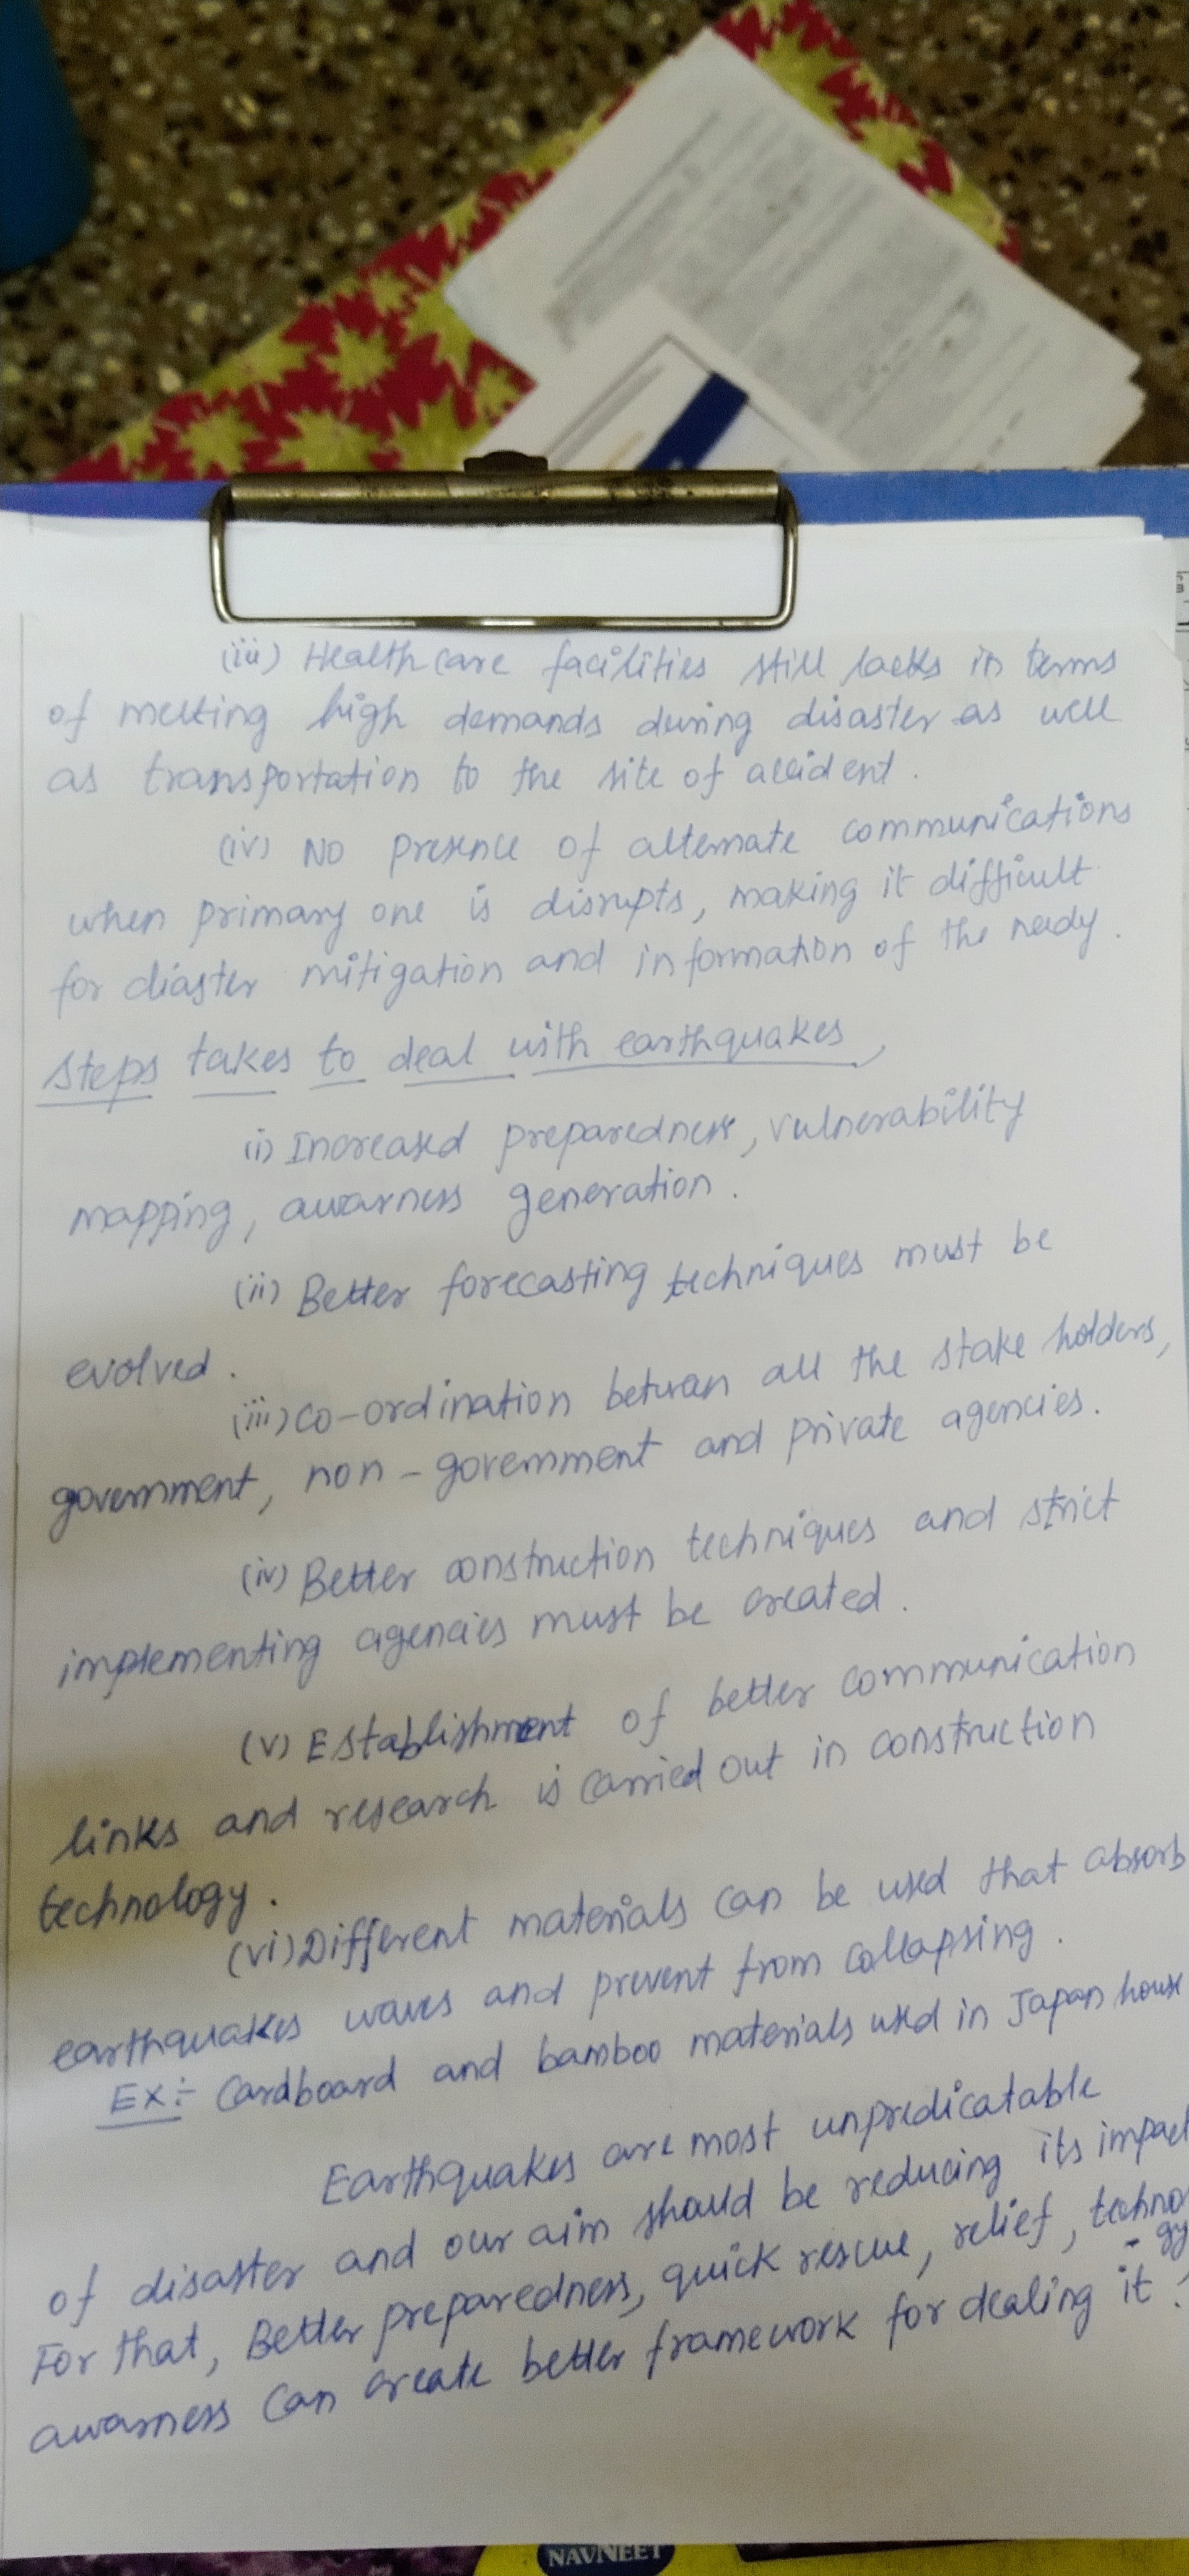 (iii) Healthcare facilities still lacks in terms
of meeting high demands during disaster as well
as transportation to the site of accident.
(iv) No presence of alternate communications
when primary one is disrupts, making it difficult
for diaster mitigation and information of the needy.
Steps takes to deal with earthquakes,
(i) Increased preparedness, vulnerability
mapping, awarness generation.
(ii) Better forecasting techniques must be
evolved.
(iii) Co-ordination between all the stake holders,
government, non-government and private agencies.
(iv) Better construction techniques and strict
implementing agencies must be created.
(v) Establishment of better communication
links and research is carried out in construction
technology.
(vi) Different materials can be used that absorb
earthquakes waves and prevent from collapsing.
Ex:- Cardboard and bamboo materials used in Japan house
Earthquakes are most unpredicatable
of disaster and our aim should be reducing its impact
For that, Better preparedness, quick rescue, relief, techno
-gy
awarness can create better framework for dealing it!
NAVNEET